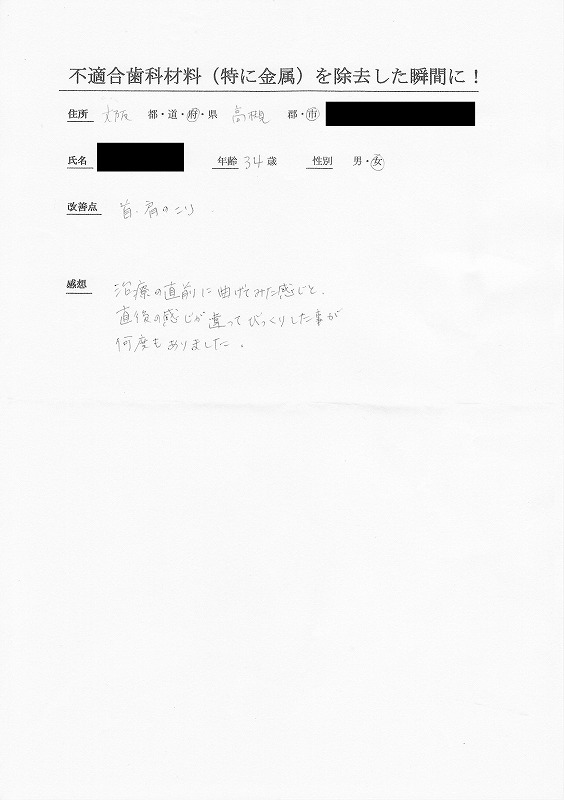 不適合歯科材料（特に金属）を除去した瞬間に！
住所 大阪 都・道・府・県 高槻 郡・市
氏名 年齢 34 歳 性別 男・女
改善点 首・肩のこり．
感想 治療の直前に曲げてみた感じと、
直後の感じが違ってびっくりした事が
何度もありました。